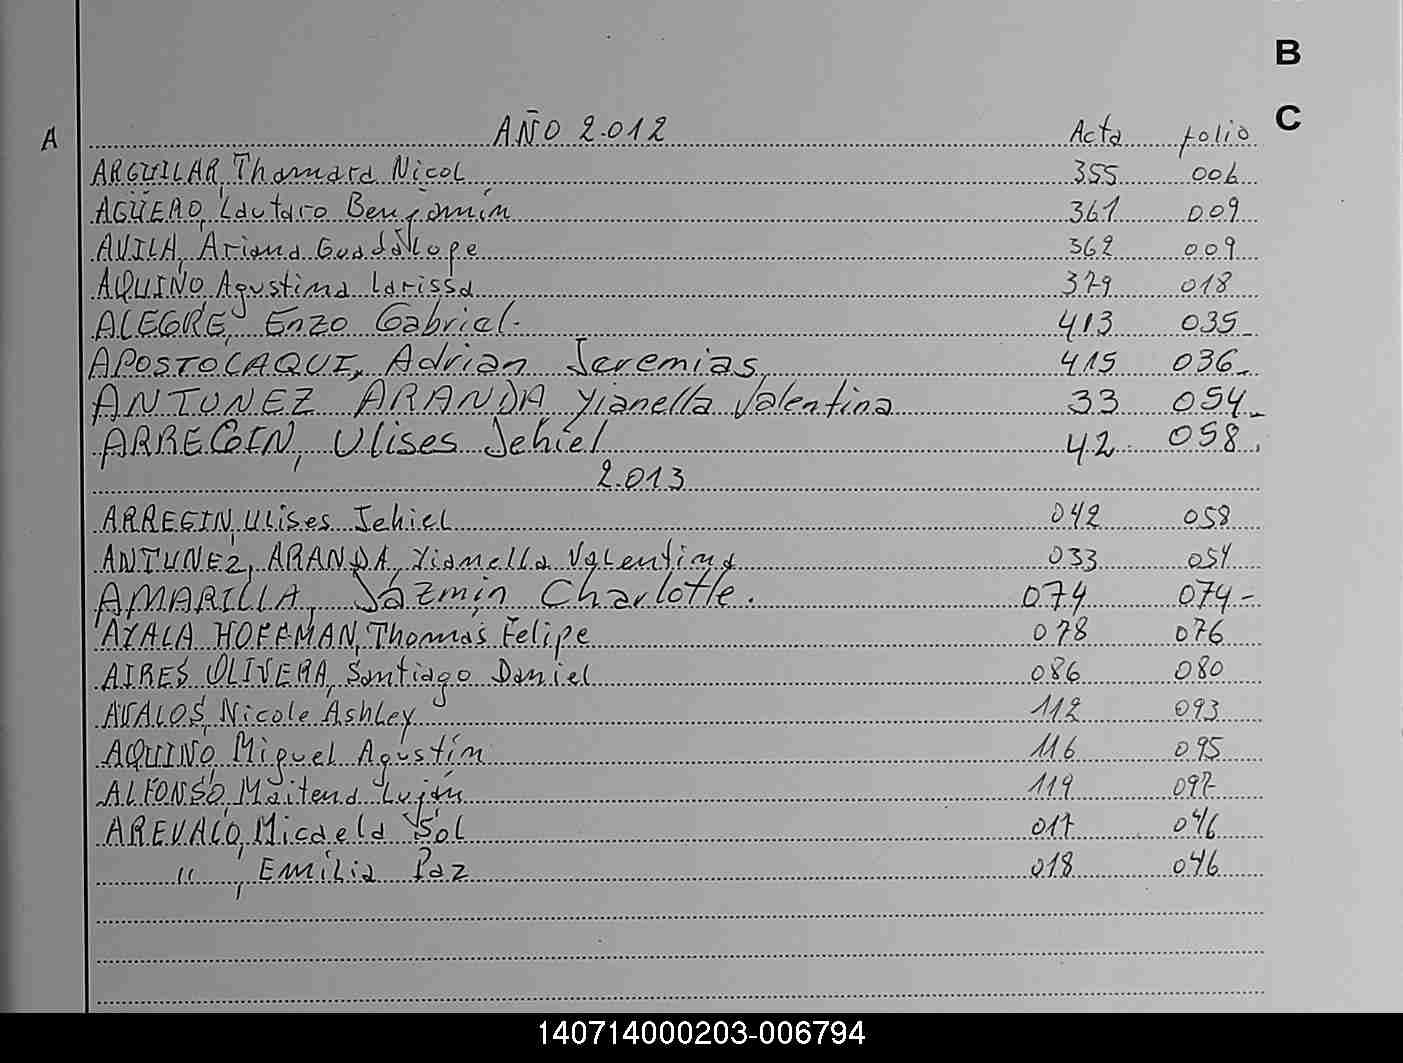 B
C
A AÑO 2.012 Acta folio
ARGUILAR, Thamara Nicol 355 006
AGÜERO, Lautaro Benjamín 361 009
AVILA, Ariana Guadalupe 362 009
AQUINO, Agustina Larissa 379 018
ALEGRE, Enzo Gabriel. 413 035
APOSTOLAQUI, Adrian Jeremias 415 036
ANTUNEZ ARANDA, Yianella Valentina 33 054
ARREGIN, Ulises Jehiel 42 058
2.013
ARREGIN, Ulises Jehiel 042 058
ANTUNEZ, ARANDA, Yianella Valentina 033 054
AMARILLA, Jázmin Charlotte. 074 074-
AYALA HOFFMAN, Thomas Felipe 078 076
AIRES OLIVERA, Santiago Daniel 086 080
AVALOS, Nicole Ashley 112 093
AQUINO, Miguel Agustín 116 095
ALFONSO, Maitena Luján 119 097
AREVALO, Micaela Sol 017 046
" , Emilia Paz 018 046
140714000203-006794